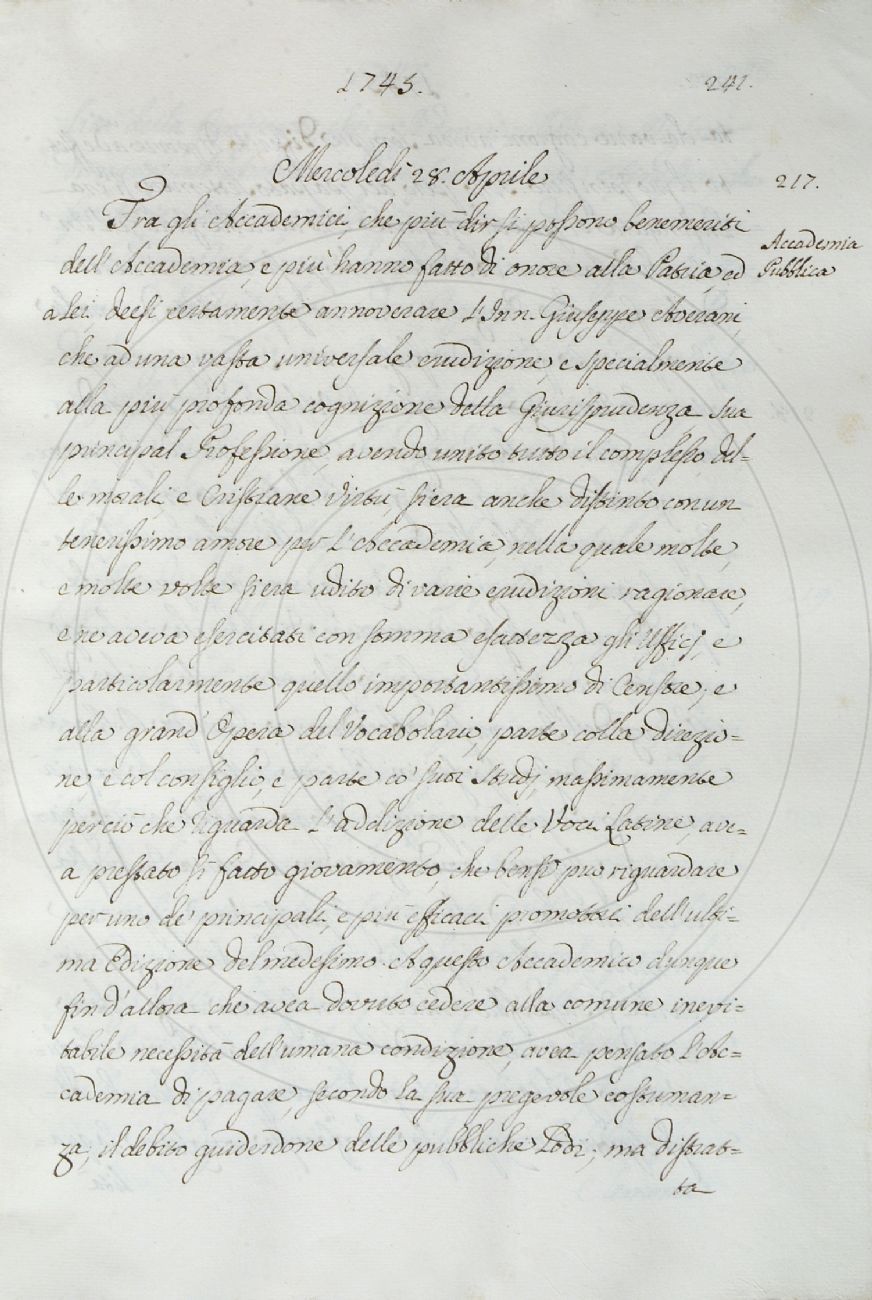 1745.
241.
Mercoledì 28. Aprile
217.
Accademia
Pubblica
Tra gli Accademici, che più dir si possono benemeriti
dell'Accademia, e più hanno fatto di onore alla Patria, ed
a Lei, deesi certamente annoverare l'Inn. Giuseppe Averani,
che ad una vasta universale erudizione, e specialmente
alla più profonda cognizione della Giurisprudenza sua
principal Professione, avendo unito tutto il complesso del=
le morali e Cristiane Virtù, s'era anche distinto con un
tenerissimo amore per l'Accademia, nella quale molte,
e molte volte s'era udito di varie erudizioni ragionare,
e ne aveva esercitati con somma esattezza gli Uffici, e
particolarmente quello importantissimo di Censore; e
alla grand'Opera del Vocabolario, parte colla direzio=
ne e col consiglio, e parte co' suoi studj, massimamente
perciò che riguarda l'addizione delle Voci Latine, ave=
a prestato sì fatto giovamento, che bensì può riguardare
per uno de' principali, e più efficaci promotori dell'ulti=
ma Edizione del medesimo. A questo Accademico dunque
fin d'allora che avea dovuto cedere alla comune inevi=
tabile necessità dell'umana condizione, avea pensato l'Ac=
cademia di pagare, secondo la sua pregevole costuman=
za, il debito guiderdone delle pubbliche Lodi; ma distrat=
ta